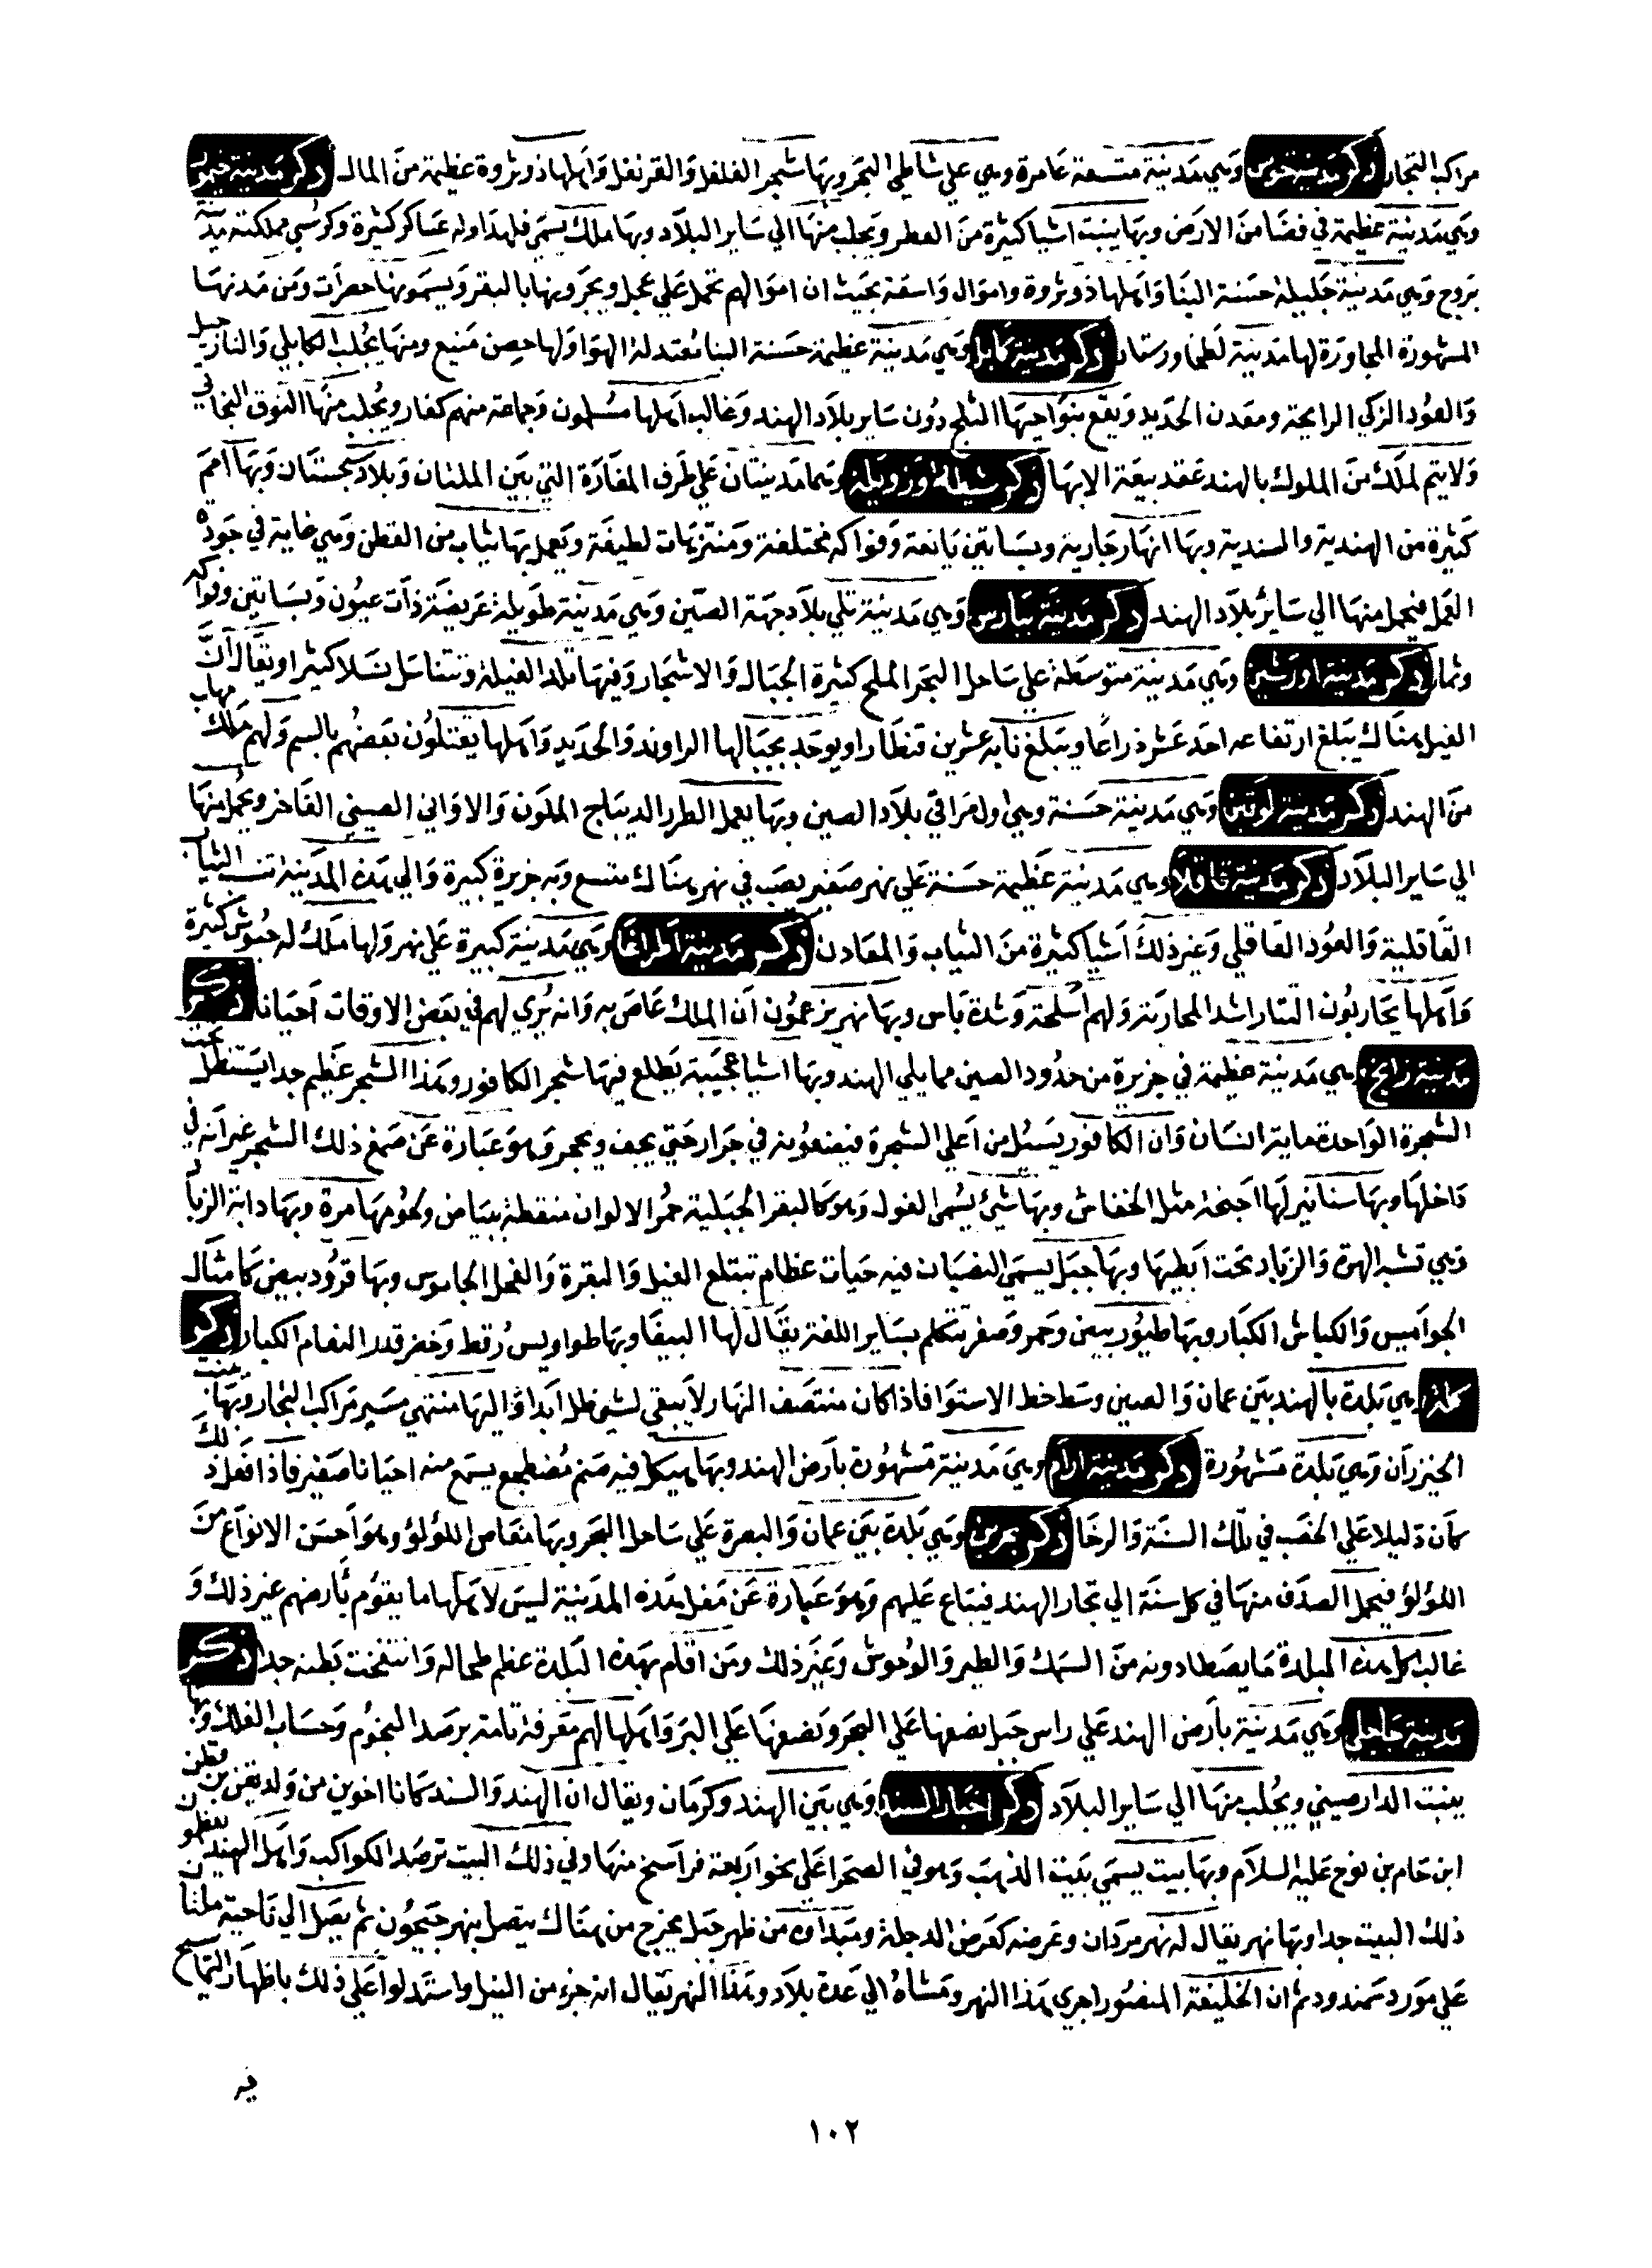 مراكب التجار ذكر مدينة جرس وهي مدينة متسعة عامرة وهي علي شاطي البحر وبها شجر الفلفل والقرنفل واهلها ذو ثروة عظيمة من المال ذكر مدينة
وهي مدينة عظيمة في فضا من الارض وبها ينبت اشيا كثيرة من العطر ويجلب منها الي ساير البلاد وبها ملك يسمي وله عساكر كثيرة وكرسي مملكته مدينة
بروج وهي مدينة جليلة حسنة البنا واهلها ذو ثروة واموال واسعة بحيث ان اموالهم تحمل علي عجل ويجرونها بالبقر ويسمونها حصرات ومن مدنها
المشهورة المجاورة لها مدينة لطخا ورستار ذكر مدينة كابل وهي مدينة عظيمة حسنة البنا معتدلة الهوا ولها حصن منيع ومنها يجلب الكابلي والنازجيل
والعود الزكي الرايحة ومعدن الحديد ويقع بنواحيها الثلج دون ساير بلاد الهند وغالب اهلها مسلمون وجماعة منهم كفار ويجلب منها النوق البخاتي
ولا يتم لملك من الملوك بالهند عقد بيعة الا بها ذكر وهما مدينتان علي طرف المفازة التي بين الملتان وبلاد سجستان وبها امم
كثيرة من الهندية والسندية وبها انهار جارية وبساتين يانعة وفواكه مختلفة ومنتزهات لطيفة ويعمل بها ثياب من القطن وهي غاية في جودة
العمل فيحمل منها الي ساير بلاد الهند ذكر مدينة وهي مدينة تلي بلاد جهة الصين وهي مدينة طويلة عريضة ذات عيون وبساتين وفواكه
وثمار ذكر مدينة اورشين وهي مدينة متوسطة علي ساحل البحر الملح كثيرة الجبال والاشجار وفيها تلد الفيلة وتتناسل نسلا كثيرا ويقال ان
الفيل هناك يبلغ ارتفاعه احد عشر ذراعا ويبلغ نابه عشرين قنطارا ويوجد بجبالها الراوند والحديد واهلها يقتلون بعضهم بالسم ولهم ملك مهاب
من الهند ذكر مدينة لوقين وهي مدينة حسنة وهي اول مراقي بلاد الصين وبها يعمل الطرر الديباج الملون والاواني الصيني الفاخر ويحمل منها
الي ساير البلاد ذكر مدينة قاقلا وهي مدينة عظيمة حسنة علي نهر صغير يصب في نهر هناك متسع وبه جزيرة كبيرة والي هذه المدينة تنسب الثياب
القاقلية والعود القاقلي وغير ذلك اشيا كثيرة من الثياب والمعادن ذكر مدينة اطراغا وهي مدينة كبيرة علي نهر ولها ملك له جيوش كثيرة
واهلها يحاربون التتار اشد المحاربة ولهم اسلحة وشدة باس وبها نهر يزعمون ان الملك غاص به وانه يري لهم في بعض الاوقات احيانا ذكر
مدينة زانج هي مدينة عظيمة في جزيرة من حدود الصين مما يلي الهند وبها اشيا عجيبة يطلع فيها شجر الكافور وهذا الشجر عظيم جدا يستظل تحت
الشجرة الواحدة ماية انسان وان الكافور يسيل من اعلي الشجرة فيضعونه في جرار حتي يجف ويحجر وهو عبارة عن صمغ ذلك الشجر غير انه في
داخلها وبها سنانير لها اجنحة مثل الخفاش وبها شيئ يسمي الغول وهو كالبقر الجبلية حمر الالوان منقطة ببياض ولحومها مرة وبها دابة الزباد
وهي تشبه الهرة والزباد تحت ابطيها وبها جبل يسمي النصبان فيه حيات عظام تبتلع الفيل والبقرة والفحل الجاموس وبها قرود بيض كامثال
الجواميس والكباش الكبار وبها طيور بيض وحمر وصفر يتكلم بساير اللغة يقال لها الببغا وبها طواويس رقط وخضر قدر النعام الكبار ذكر
كله هي بلدة بالهند بين عمان والصين وسط خط الاستوا فاذا كان منتصف النهار لا يبقي لشي ظل ابدا واليها منتهي مسير مراكب التجار وبها منبت
الخيزران وهي بلدة مشهورة ذكر مدينة ارام وهي مدينة مشهورة بارض الهند وبها هيكل فيه صنم مضطجع يسمع منه احيانا صفير فاذا فعل ذلك
كان دليلا علي الخصب في تلك السنة والرخا ذكر بحرين وهي بلدة بين عمان والبصرة علي ساحل البحر وبها مغاص اللؤلؤ وهو احسن الانواع من
اللؤلؤ فيحمل الصدف منها في كل سنة الي تجار الهند فيباع عليهم وهو عبارة عن مغل هذه المدينة ليس لاهلها ما يقوم بارضهم غير ذلك و
غالب اكل هذه البلدة ما يصطادونه من السمك والطير والوحوش وغير ذلك ومن اقام بهذه البلدة عظم طحاله وانتفخت بطنه جدا ذكر
مدينة جاجلي وهي مدينة بارض الهند علي راس جبل نصفها علي البحر ونصفها علي البر واهلها لهم معرفة تامة برصد النجوم وحساب الفلك وبها
ينبت الدارصيني ويجلب منها الي ساير البلاد ذكر اخبار السند وهي بين الهند وكرمان ويقال ان الهند والسند كانا اخوين من ولد يقن بن يقطن
ابن حام بن نوح عليه السلام وبها بيت يسمي بيت الذهب وهو في الصحرا علي نحو اربعة فراسخ منها وفي ذلك البيت ترصد الكواكب واهل الهند يعظمون
ذلك البيت جدا وبها نهر يقال له نهر مردان وعرضه كعرض الدجلة ومبداوه من ظهر جبل يخرج من هناك يتصل بنهر جيحون ثم يصل الي ناحية ملتان
علي مورد سمندود ثم ان الخليفة المنصور اجري هذا النهر ومشاه الي عدة بلاد وهذا النهر يقال انه جزء من النيل واستدلوا علي ذلك باظهار التماسيح
فيه
١٠٢